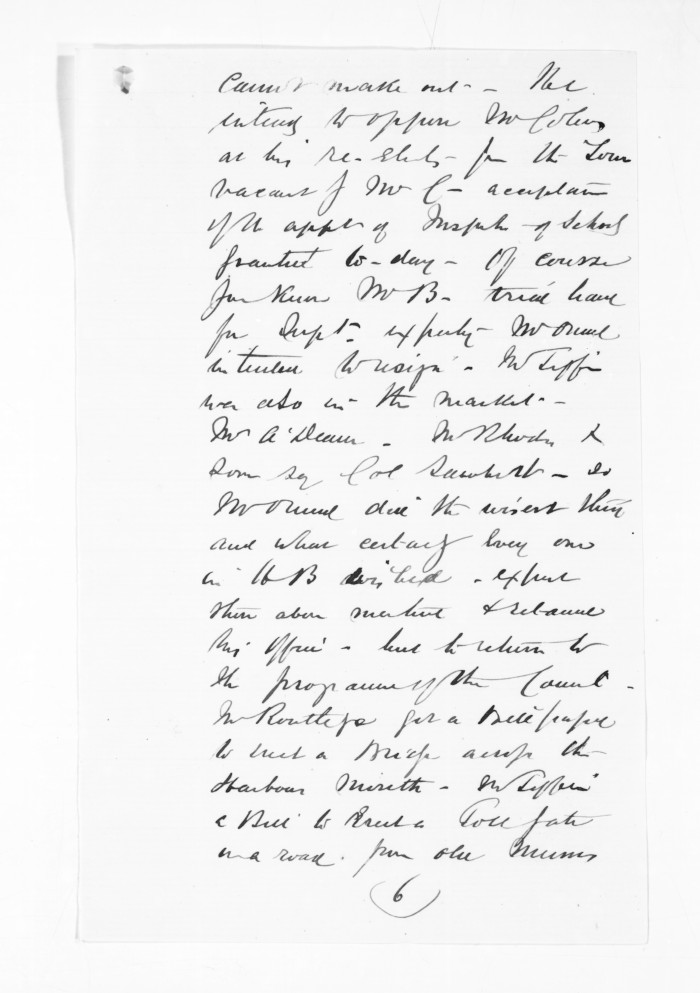 cannot make out - He
intends to oppose Mr Colenso
at his re-electn - for the Town
vacant by Mr C - acceptance
of the appt of Inspectr - of Schools
granted to-day - Of course
you know Mr B - tried hard
for Supt - expectg Mr Ormond
intended to resign - Mr Tiffin
was also in the market -
Mr A'Deane - Mr Rhodes &
some say Col Lambert - so
Mr Ormond did the wisest thing
and what certainly every one
in H B wished - except
those above mentioned & retained
his office - but to return to
the programme of the Council -
Mr Routledge got a Bill passed
to erect a Bridge across the
Harbour Mouth - Mr Tiffin
a Bill to Erect a Toll gate
on a road. from old
(6)